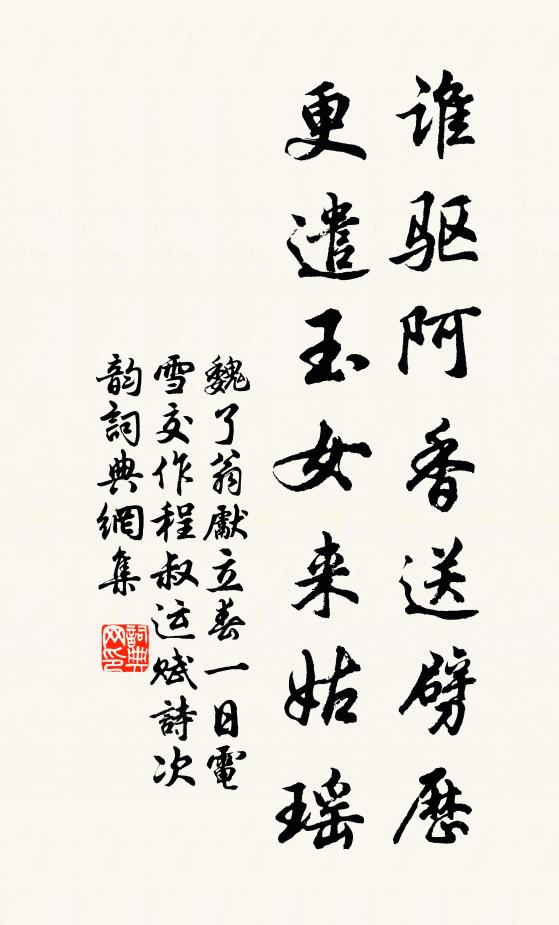 谁驱阿香送劈历
更遣玉女来姑瑶
魏了翁獻立春一日電
雪交作程叔运赋詩次
韵詞典網集
詞典网印